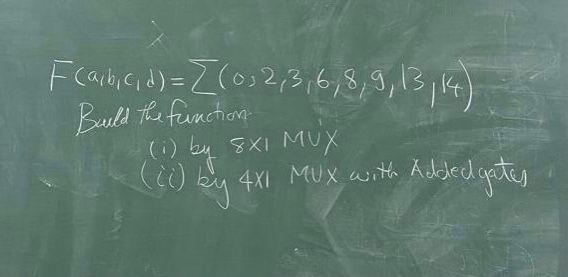 F(a,b,c,d)=Σ(0,2,3,6,8,9,13,14)
Build the function
(i) by 8X1 MUX
(ii) by 4X1 MUX with Added gates